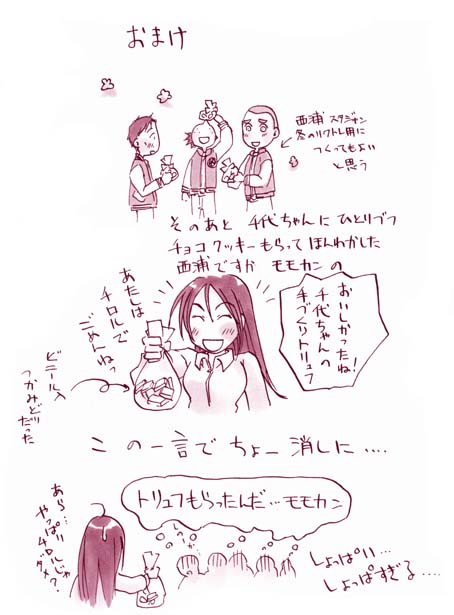 おまけ
西浦 スタジャン
冬のソフトレ用に
つくってもよい
と思う
そのあと 千代ちゃんに ひとりづつ
チョコクッキーもらって ほんわかした
西浦ですが モモカンの
おいしかったね!
千代ちゃんの
手づくりトリュフ
あたしは
チロルで
ごめんねっ
ビニール入
つかみどり
だった
この一言で ちょー 消しに....
トリュフもらったんだ…モモカン
あら…
やっぱり
チロルじゃ
ダメ?
しょっぱい…
しょっぱすぎる....